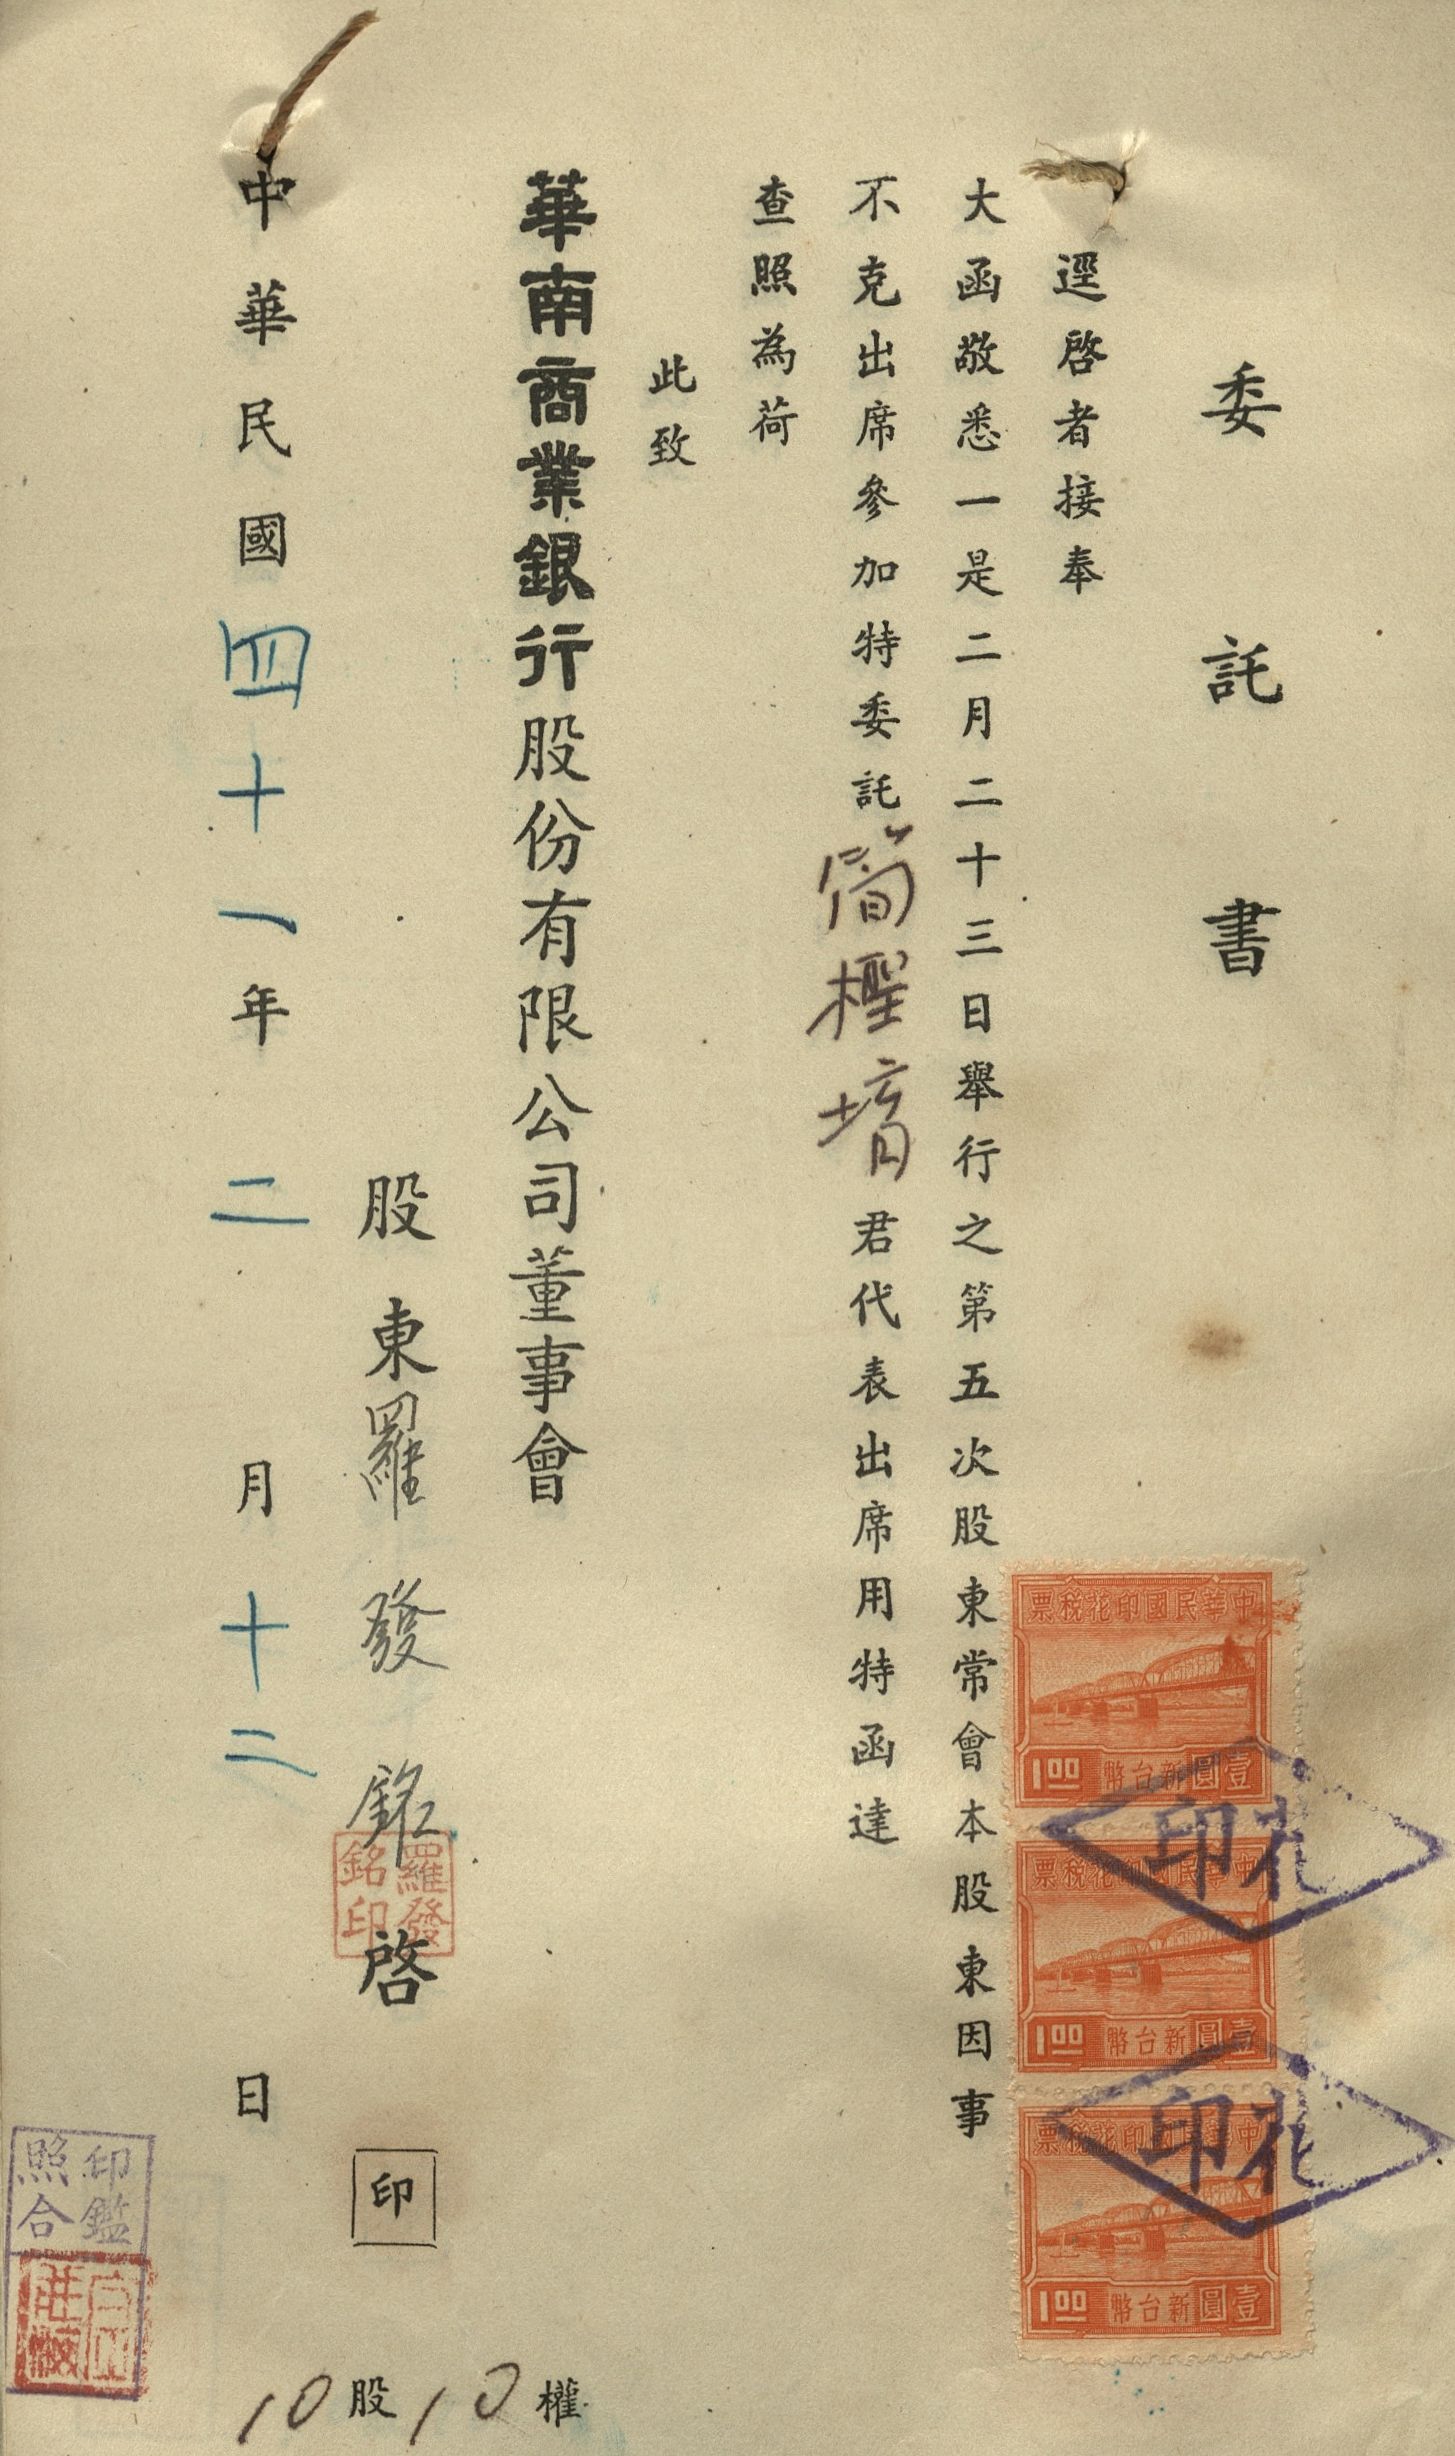 委託書
逕啓者接奉
大函敬悉一是二月二十三日舉行之第五次股東常會本股東因事
不克出席參加特委託簡檉堉君代表出席用特函達
查照為荷
此致
華南商業銀行股份有限公司董事會
股東羅發銘啓 印
羅發銘印
中華民國四十一年二月十二日
10股10權
中華民國印花稅票
壹圓新台幣
1.00
中華民國印花稅票
壹圓新台幣
1.00
中華民國印花稅票
壹圓新台幣
1.00
花印
花印
印鑑照合